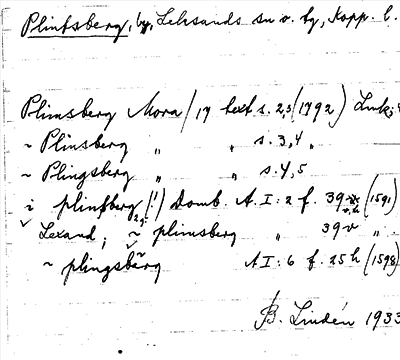 Plintsberg, by, Leksands sn o. tg, Kopp. l.
Plinsberg Mora/17 text s. 2,3 (1792)
~ Plinsberg " " s. 3,4 "
~ Plingsberg " " s. 4,5
i plintberg (!) Domb. A I: 2 f. 39 (1591)
Lexand; ~ plimsberg " 39 v " .
~ plingsbärg A I: 6 f. 25 h (1598)
B. Lindén 1933